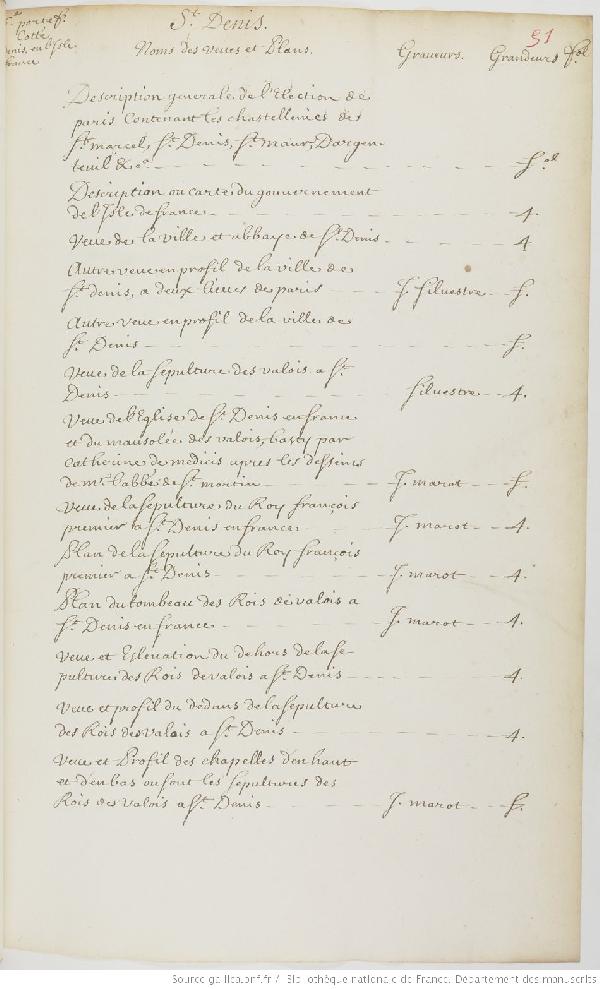 St. Denis.
portef.
Cotté
Denis, en l'Isle
france
51
Noms des veues et Plans. Graveurs. Grandeurs fol
Description generale de l'Election de
paris contenant les chastellenies des
St. marcel, St. Denis, St. maur, Dargen
teuil &c. fol
Description ou carte du gouvernement
de l'Isle de france 4.
Veue de la ville et abbaye de St. Denis 4
Autre veue en profil de la ville de
St. denis, a deux lieues de paris J. Silvestre f.
Autre veue en profil de la ville de
St. Denis f.
Veue de la sepulture des valois a St.
Denis Silvestre 4.
Veue de l'Eglise de St. Denis en france
et du mausolée des valois, basty par
Catherine de medicis apres les desseins
de mr. l'abbé de St. martin J. marot f.
Veue de la sepulture du Roy françois
premier a St. Denis en france J. marot 4.
Plan de la sepulture du Roy françois
premier a St. Denis J. marot 4.
Plan du tombeau des Rois de valois a
St. Denis en france J. marot 4.
Veue et Eslevation du dehors de la se-
pulture des Rois de valois a St. Denis 4.
Veue et profil du dedans de la sepulture
des Rois des valois a St. Denis 4.
Veue et Profil des chapelles d'en haut
et d'en bas ou sont les sepultures des
Rois des valois a St. Denis J. marot f.
Source gallica.bnf.fr / Bibliothèque nationale de France. Département des manuscrits